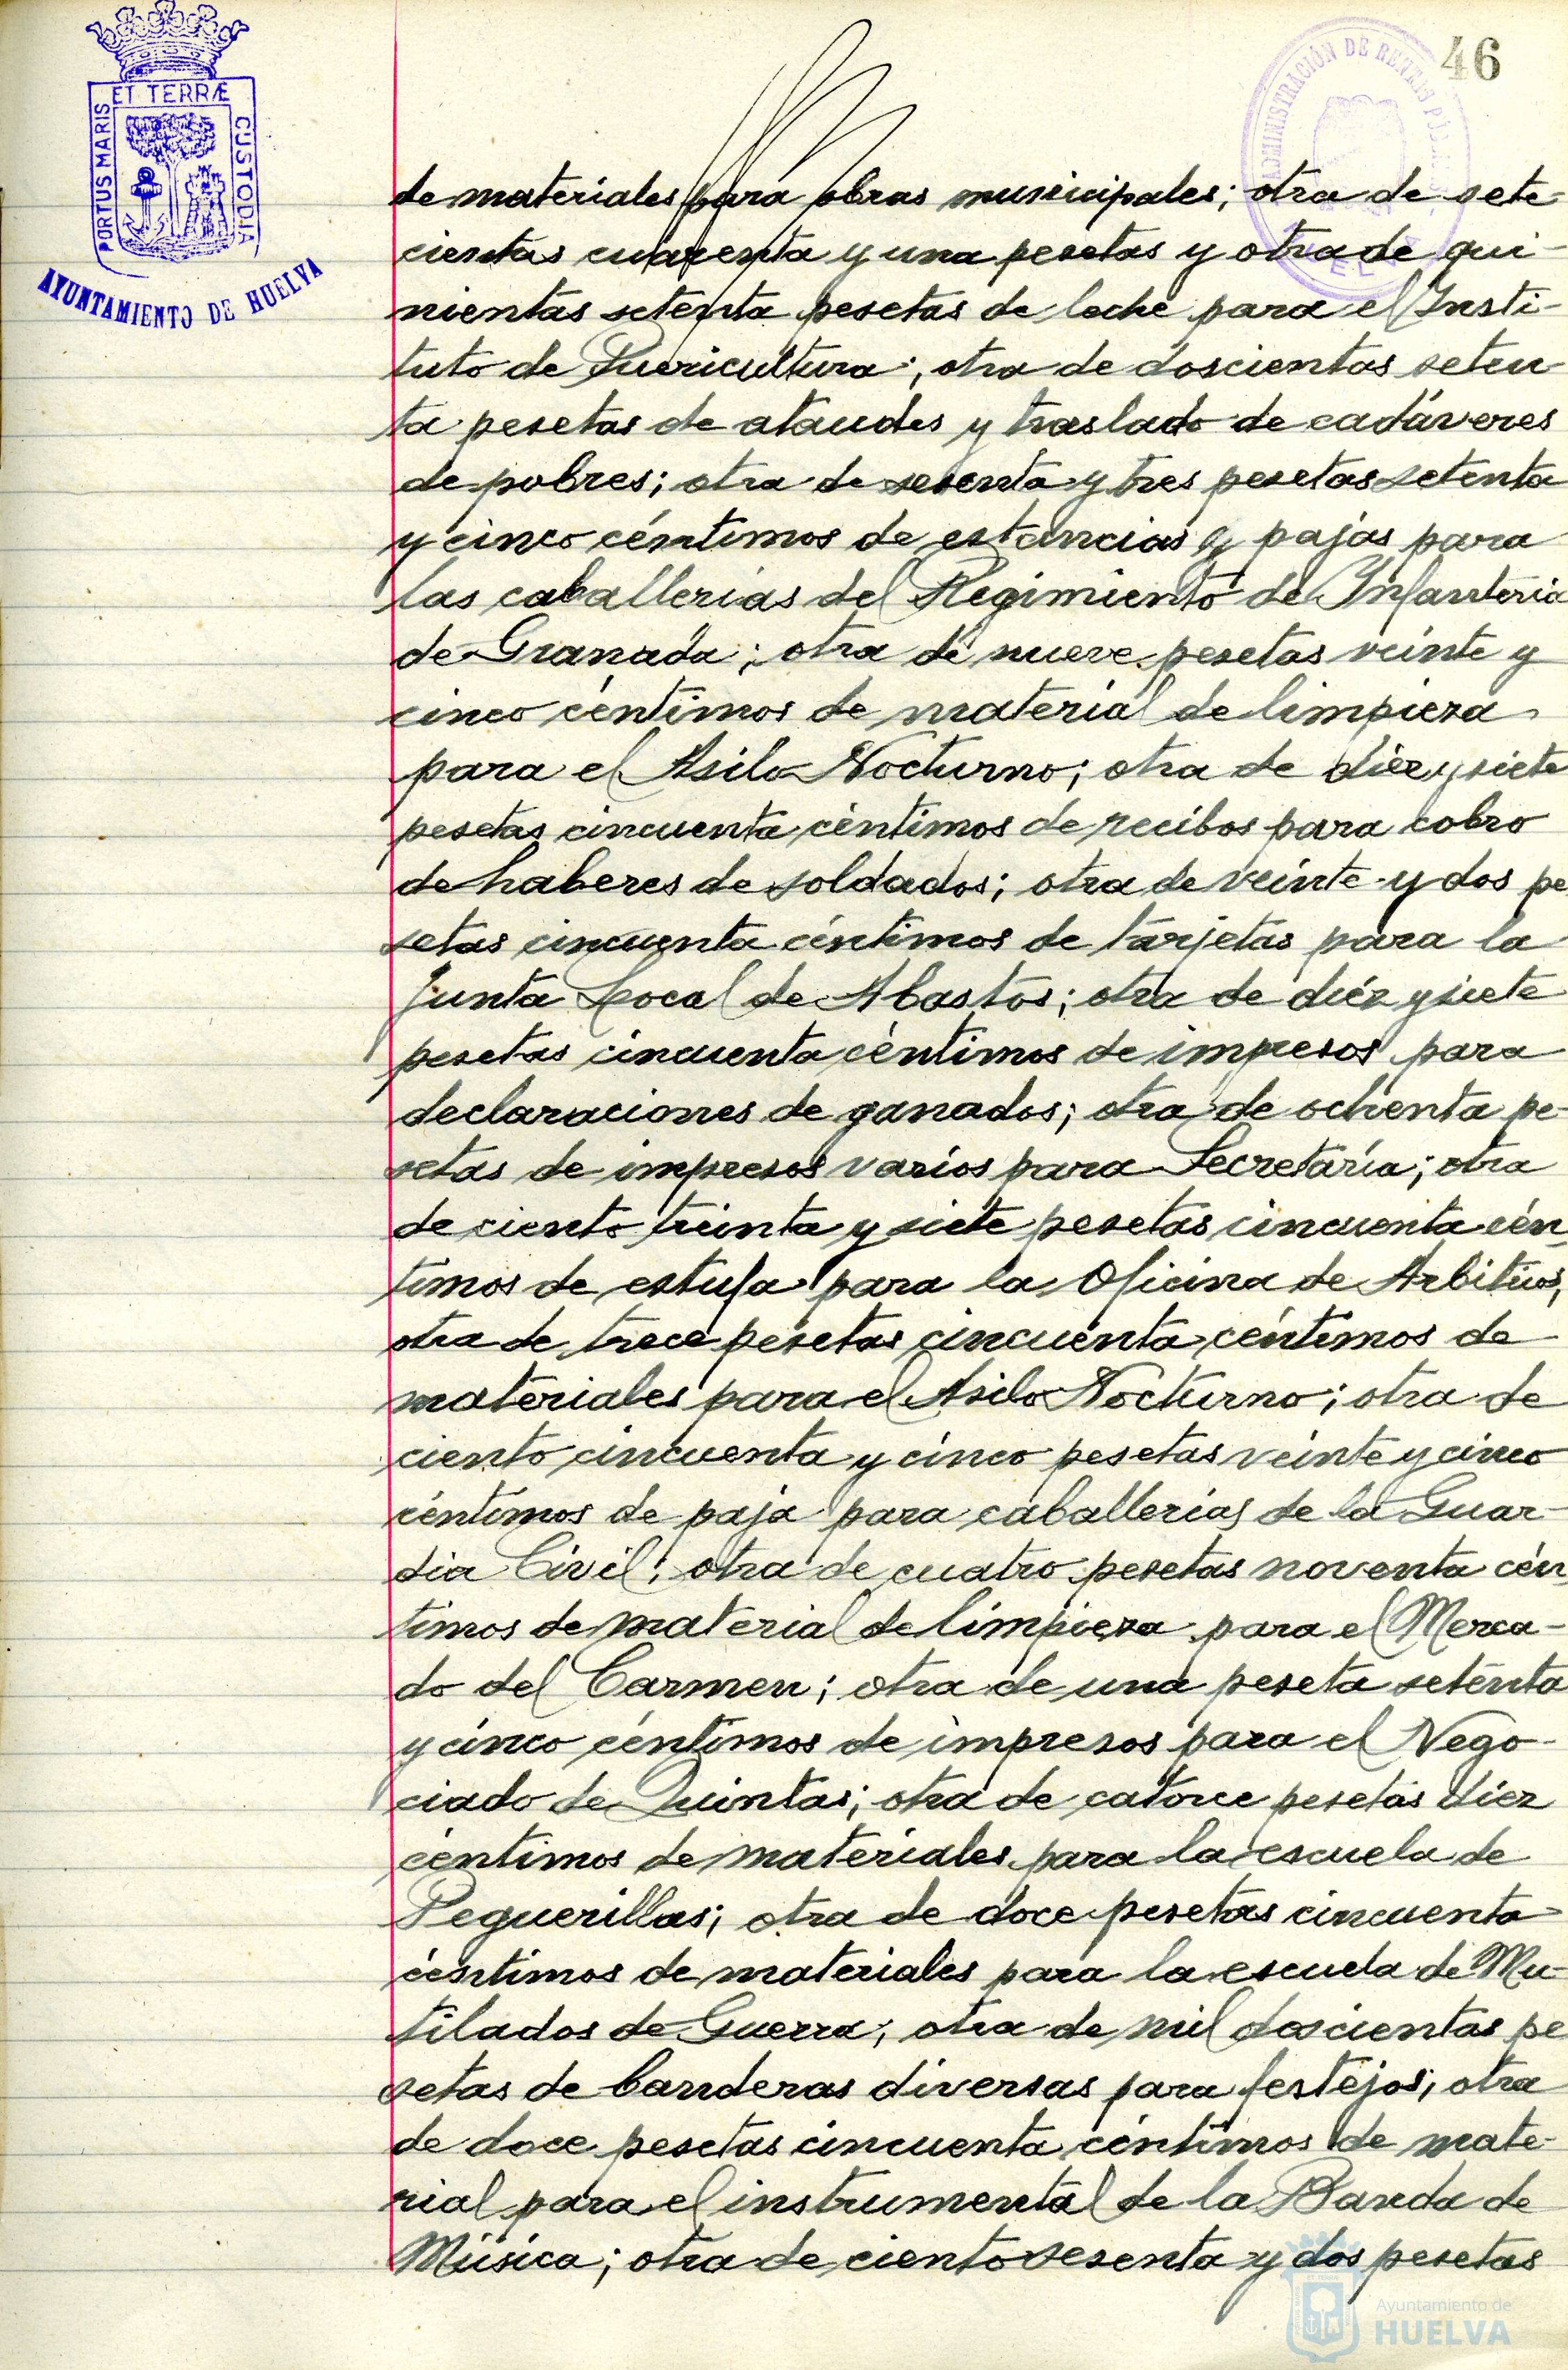 46
ET TERRÆ
PORTUS MARIS
CUSTODIA
AYUNTAMIENTO DE HUELVA
ADMINISTRACIÓN DE RENTAS
de materiales para obras municipales; otra de sete-
cientas cuarenta y una pesetas y otra de qui-
nientas setenta pesetas de leche para el Insti-
tuto de Puericultura; otra de doscientas seten-
ta pesetas de ataudes y traslado de cadáveres
de pobres; otra de sesenta y tres pesetas setenta
y cinco céntimos de estancias y pajas para
las caballerias del Regimiento de Infanteria
de Granada; otra de nueve pesetas veinte y
cinco céntimos de material de limpieza
para el Asilo Nocturno; otra de diez y siete
pesetas cincuenta céntimos de recibos para cobro
de haberes de soldados; otra de veinte y dos pe
setas cincuenta céntimos de tarjetas para la
Junta Local de Abastos; otra de diéz y siete
pesetas cincuenta céntimos de impresos para
declaraciones de ganados; otra de ochenta pe-
setas de impresos varios para Secretaría; otra
de ciento treinta y siete pesetas cincuenta cén-
timos de estufa para la Oficina de Arbitrios,
otra de trece pesetas cincuenta céntimos de
materiales para el Asilo Nocturno; otra de
ciento cincuenta y cinco pesetas veinte y cinco
céntimos de paja para caballerías de la Guar-
dia Civil; otra de cuatro pesetas noventa cén
timos de material de limpieza para el Merca-
do del Carmen; otra de una peseta setenta
y cinco céntimos de impresos para el Nego-
ciado de Quintas; otra de catorce pesetas diez
céntimos de materiales para la escuela de
Peguerillas; otra de doce pesetas cincuenta
céntimos de materiales para la escuela de Mu-
tilados de Guerra; otra de mil doscientas pe
setas de banderas diversas para festejos; otra
de doce pesetas cincuenta céntimos de mate-
rial para el instrumental de la Banda de
Música; otra de ciento sesenta y dos pesetas
Ayuntamiento de
HUELVA